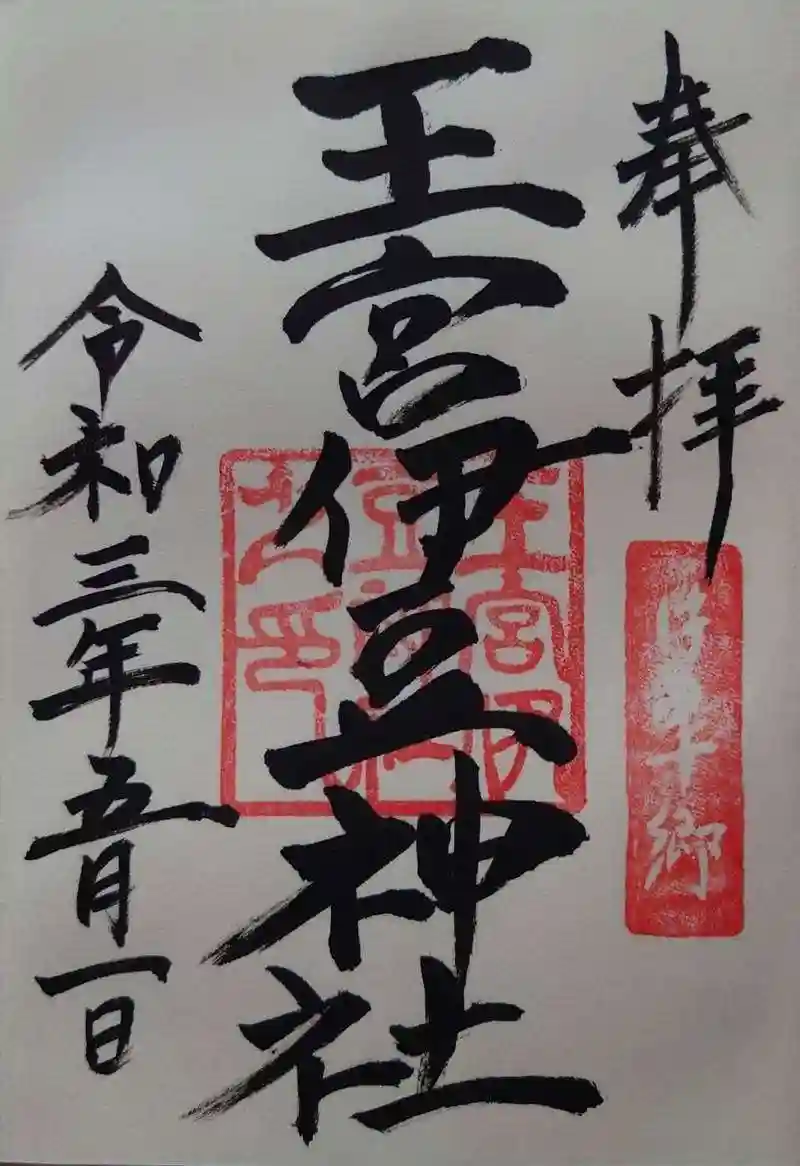 奉拝
王宮伊豆神社
令和三年五月一日